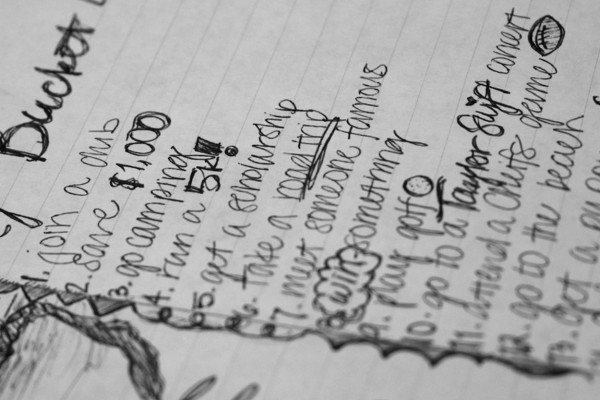 y Bucket L
1. join a club
2. save $1,000
3. go camping
4. run a 5k!
5. get a scholarship
6. take a road trip
7. meet someone famous
8. win something
9. play golf
10. go to a Taylor Swift concert
11. attend a chiefs game
12. go to the beach
13. get a